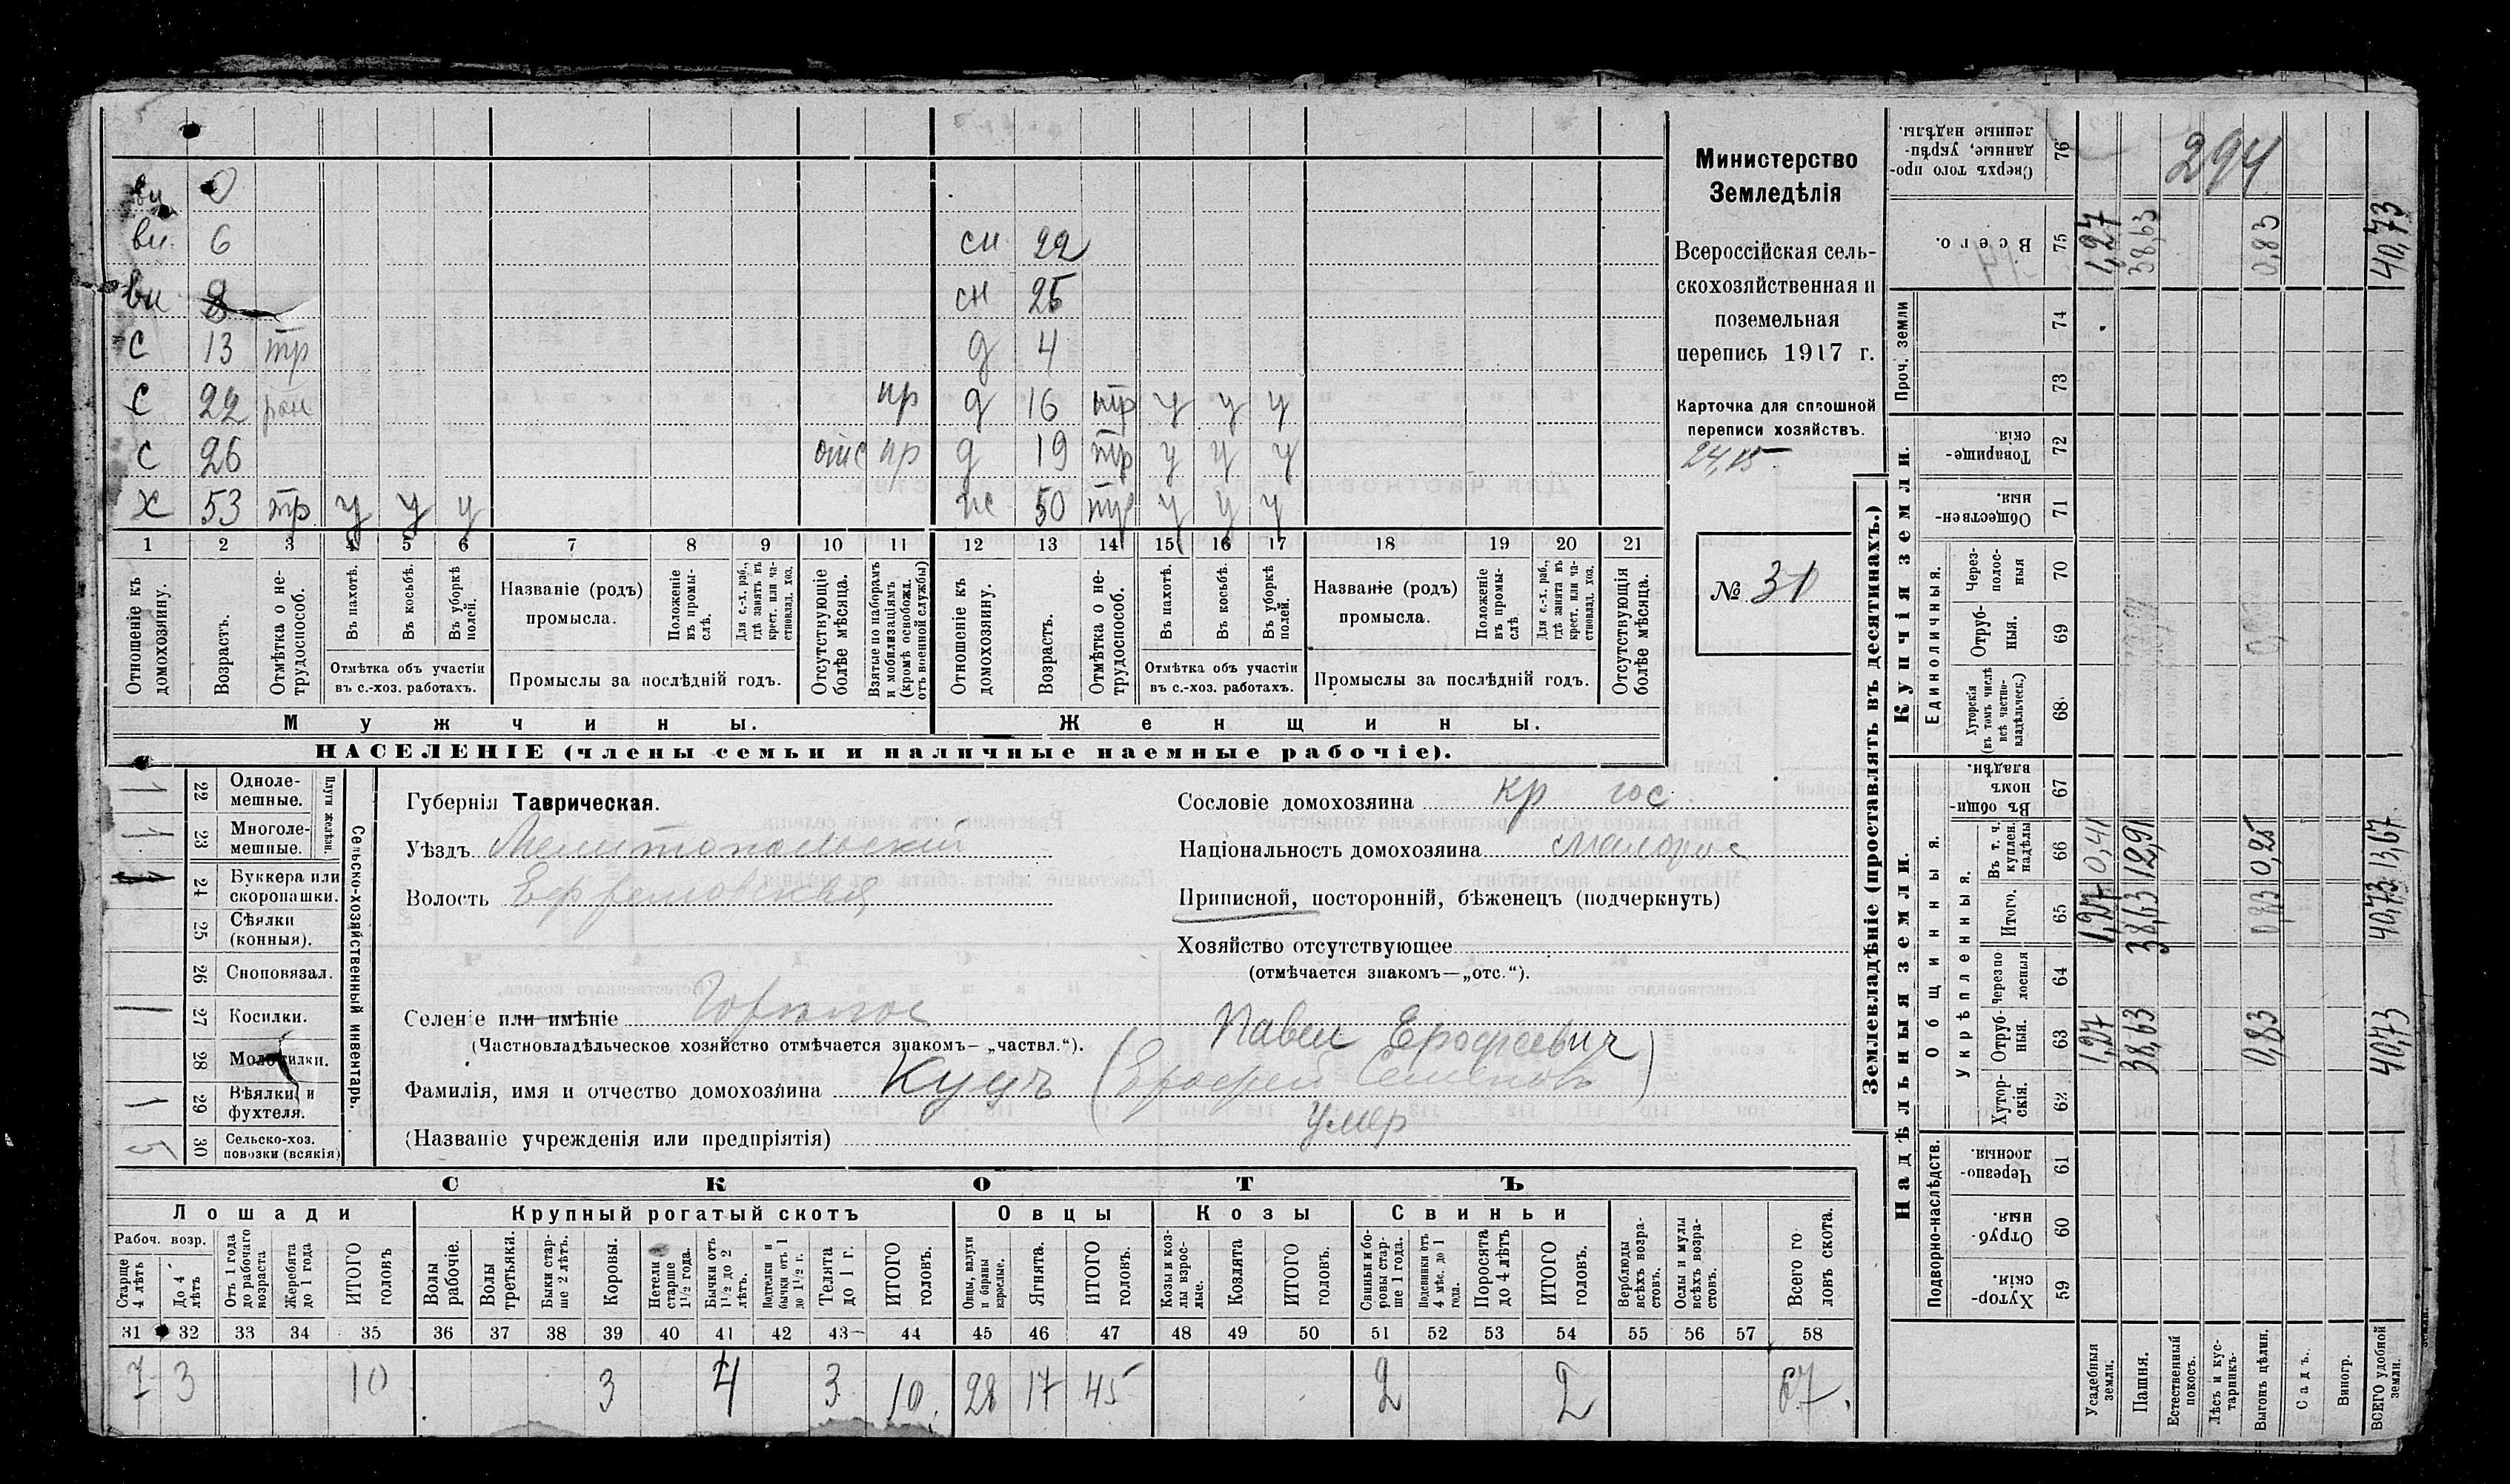 вн 0
вн. 6 сн 22
вн 8 сн 25
с 13 тр д 4
с 22 пр д 16 тр у у у
с 26 отс пр д 19 тр у у у
х 53 тр у у у 50 тр у у у
1 2 3 4 5 6 7 8 9 10 11 12 13 14 15 16 17 18 19 20 21
Отношеніе къ домохозяину.
Возрастъ.
Отмѣтка о не-трудоспособ.
Въ пахотѣ.
Въ косьбѣ.
Въ уборкѣ полей.
Отмѣтка объ участіи
въ с.-хоз. работахъ.
Названіе (родъ)
промысла.
Положеніе въ промы-слѣ.
Для с.-х. раб., гдѣ занятъ въ крест. или ча-стновлад. хоз.
Промыслы за послѣдній годъ.
Отсутствующіе болѣе мѣсяца.
Взятые по наборамъ и мобилизаціямъ (кромѣ освобожд. отъ военной службы)
Отношеніе къ домохозяину.
Возрастъ.
Отмѣтка о не-трудоспособ.
Въ пахотѣ.
Въ косьбѣ.
Въ уборкѣ полей.
Отмѣтка объ участіи
въ с.-хоз. работахъ.
Названіе (родъ)
промысла.
Положеніе въ промы-слѣ
Для с.-х. раб., гдѣ занята въ крест. или ча-стновлад. хоз.
Промыслы за послѣдній годъ.
Отсутствующія болѣе мѣсяца.
Мужчины. Женщины.
НАСЕЛЕНІЕ (члены семьи и наличные наемные рабочіе).
Министерство
Земледѣлія
Всероссійская сель-
скохозяйственная и
поземельная
перепись 1917 г.
Карточка для сплошной
переписи хозяйствъ.
24,15
№ 31
Сельско-хозяйственный инвентарь.
Плуги желѣзн.
1 22 Однолемешные.
1 23 Многолемешные.
24 Буккера или скоропашки.
25 Сѣялки (конныя).
26 Сноповязал.
1 27 Косилки.
28 Молотилки.
1 29 Вѣялки и фухтеля.
5 30 Сельско-хоз. повозки (всякія)
Губернія Таврическая.
Уѣздъ Мелитопольскій
Волость Ефремовская
Сословіе домохозяина кр гос.
Національность домохозяина малорос
Приписной, посторонній, бѣженецъ (подчеркнуть)
Хозяйство отсутствующее
(отмѣчается знакомъ—„отс.“).
Селеніе или имѣніе
(Частновладѣльческое хозяйство отмѣчается знакомъ— „частвл.“).
Павел Ерофеевич
Фамилія, имя и отчество домохозяина Куцъ (Ерофей Семеновъ)
умер
(Названіе учрежденія или предпріятія)
СКОТЪ
Лошади Крупный рогатый скотъ Овцы Козы Свиньи
Рабоч. возр.
Старше 4 лѣтъ
До 4 лѣтъ
Отъ 1 года до рабочаго возраста
Жеребята до 1 года
ИТОГО головъ
Волы рабочіе.
Волы третьяки.
Быки стар-ше 2 лѣтъ.
Коровы.
Нетели старше 1½ года.
Бычки отъ 1½ до 2 лѣтъ.
Подтелки и бычки отъ 1 до 1½ г.
Телята до 1 г.
ИТОГО головъ.
Овцы, валухи и бараны взрослые.
Ягнята.
ИТОГО головъ.
Козы и коз-лы взрос-лые.
Козлята
ИТОГО головъ.
Свиньи и бо-ровы стар-ше 1 года.
Подсвинки отъ 4 мѣс. до 1 года.
Поросята до 4 лѣтъ
ИТОГО головъ.
Верблюды всѣхъ возра-стовъ.
Ослы и мулы всѣхъ возра-стовъ.
Всего го ловъ скота.
31 32 33 34 35 36 37 38 39 40 41 42 43 44 45 46 47 48 49 50 51 52 53 54 55 56 57 58
7 3 10 3 4 3 10 28 17 45 2 2 67.
Землевладѣніе (проставлять въ десятинахъ.)
Купчія земли.
Надѣльныя земли.
294
Сверхъ того про-данные, укрѣп-ленные надѣлы. 76
Всего. 75 1,27 38,63 0,83 40,73
Проч. земли 74
73
Товарище-скія. 72
Обществен-ныя. 71
Единоличныя.
Через-полос-ныя 70
Отруб-ныя. 69
Хуторскія (въ томъ числѣ всѣ частно-владѣльческ.) 68
Общинныя.
Въ общин номъ владѣн. 67
Укрѣпленныя.
Въ т. ч. куплен. надѣлы 66 0,41 12,91 0,25 13,67
Итого. 65 1,27 38,63 0,83 40,73
Черезпо лосныя 64
Отруб-ныя. 63 1,27 38,63 0,83 40,73
Хутор-скія. 62
Подворно-наслѣдств.
Черезпо-лосныя. 61
Отруб-ныя. 60
Хутор-скія. 59
Усадебныя земли.
Пашня.
Естественный покосъ.
Лѣсъ и кус-тарникъ.
Выгонъ цѣлин.
Садъ.
Виногр.
ВСЕГО удобной земли.